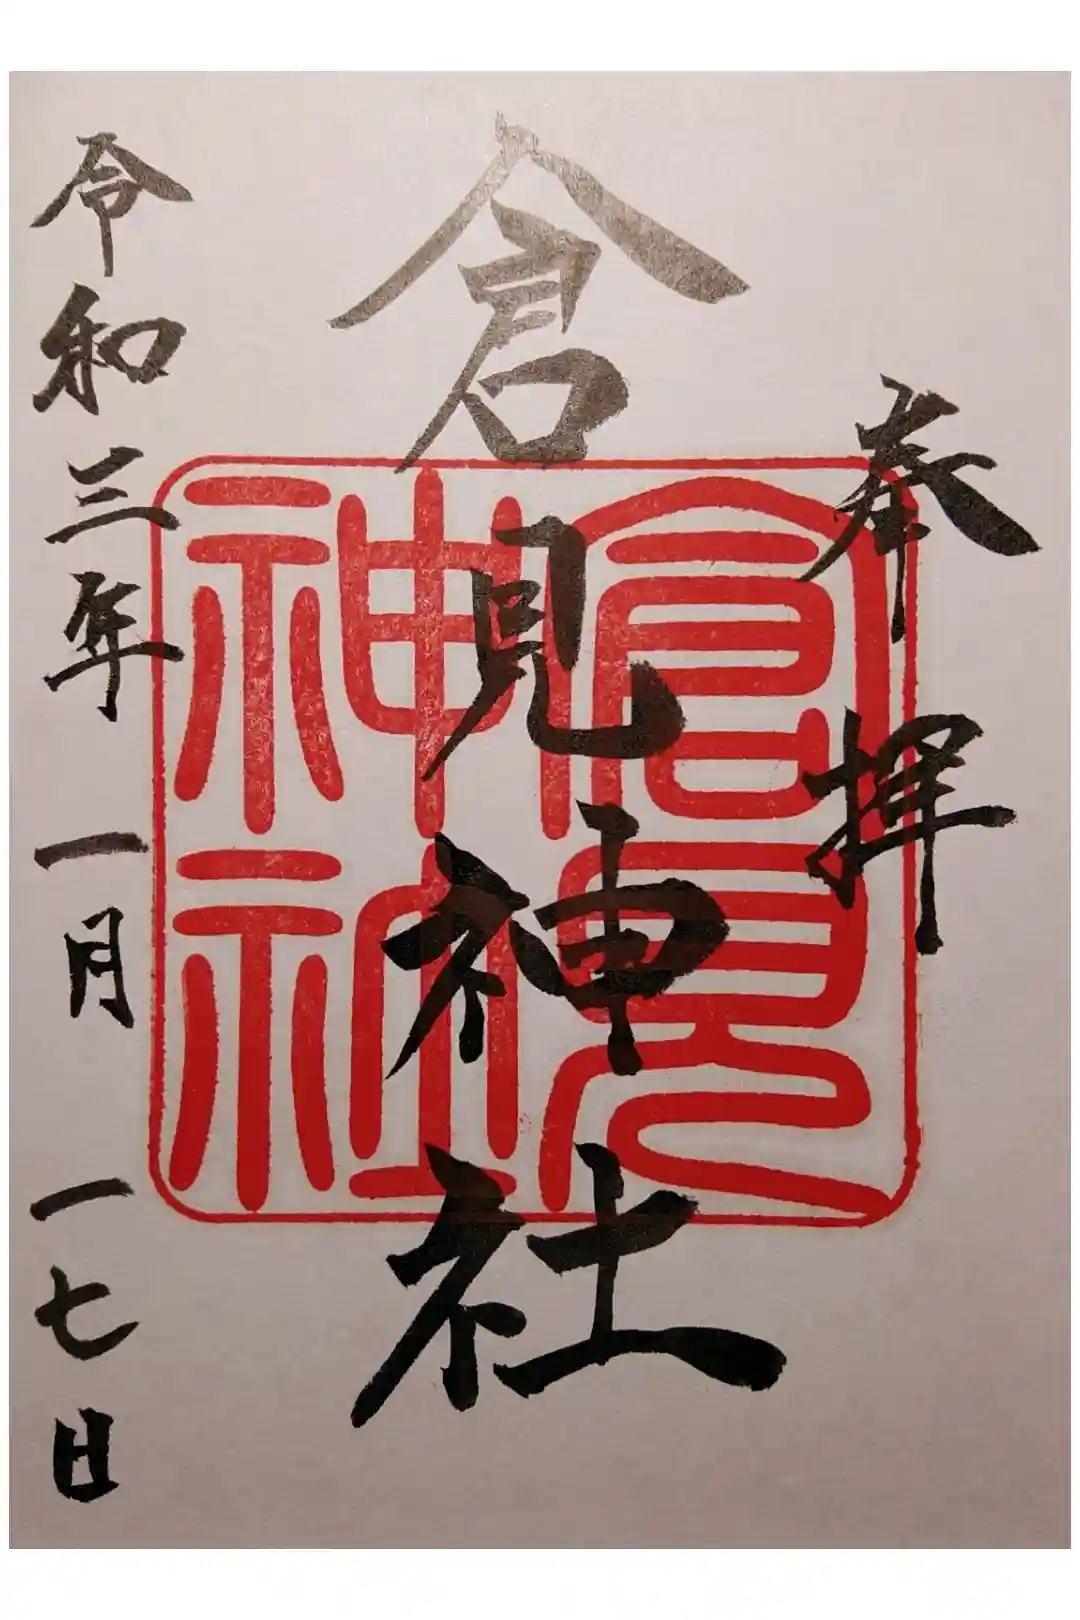 奉拝
倉見神社
倉見
神社
令和三年一月一七日